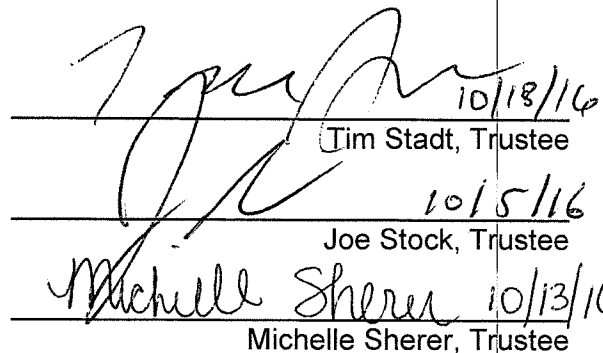 10/18/16
Tim Stadt, Trustee
10/5/16
Joe Stock, Trustee
Michelle Sherer 10/13/16
Michelle Sherer, Trustee